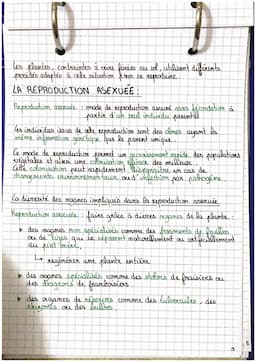 Les plantes, contraintes à vivre fixées au sol, utilisent différents
procédés adaptés à cette situation pour se reproduire.
LA REPRODUCTION ASEXUÉE :
Reproduction asexuée : mode de reproduction assuré sans fécondation à
partir d'un seul individu parental
Les individus issus de cette reproduction sont des clones ayant la
même information génétique que le parent unique.
Ce mode de reproduction permet un accroissement rapide des populations
végétales et ainsi une colonisation efficace des milieux.
Cette colonisation peut rapidement disparaître en cas de
changements environnementaux ou d'infection par pathogène.
La diversité des organes impliqués dans la reproduction asexuée.
Reproduction asexuée : faire grâce à divers organes de la plante.
▸ des organes non spécialisés comme des fragments de feuilles
ou de tiges qui se séparent naturellement ou artificiellement
du pied mère.
↳ régénérer une plante entière
▸ des organes spécialisés comme des stolons de fraisiers ou
des drageons de framboisiers
▸ des organes de réserves comme des tubercules, des
rhizomes ou des bulbes.